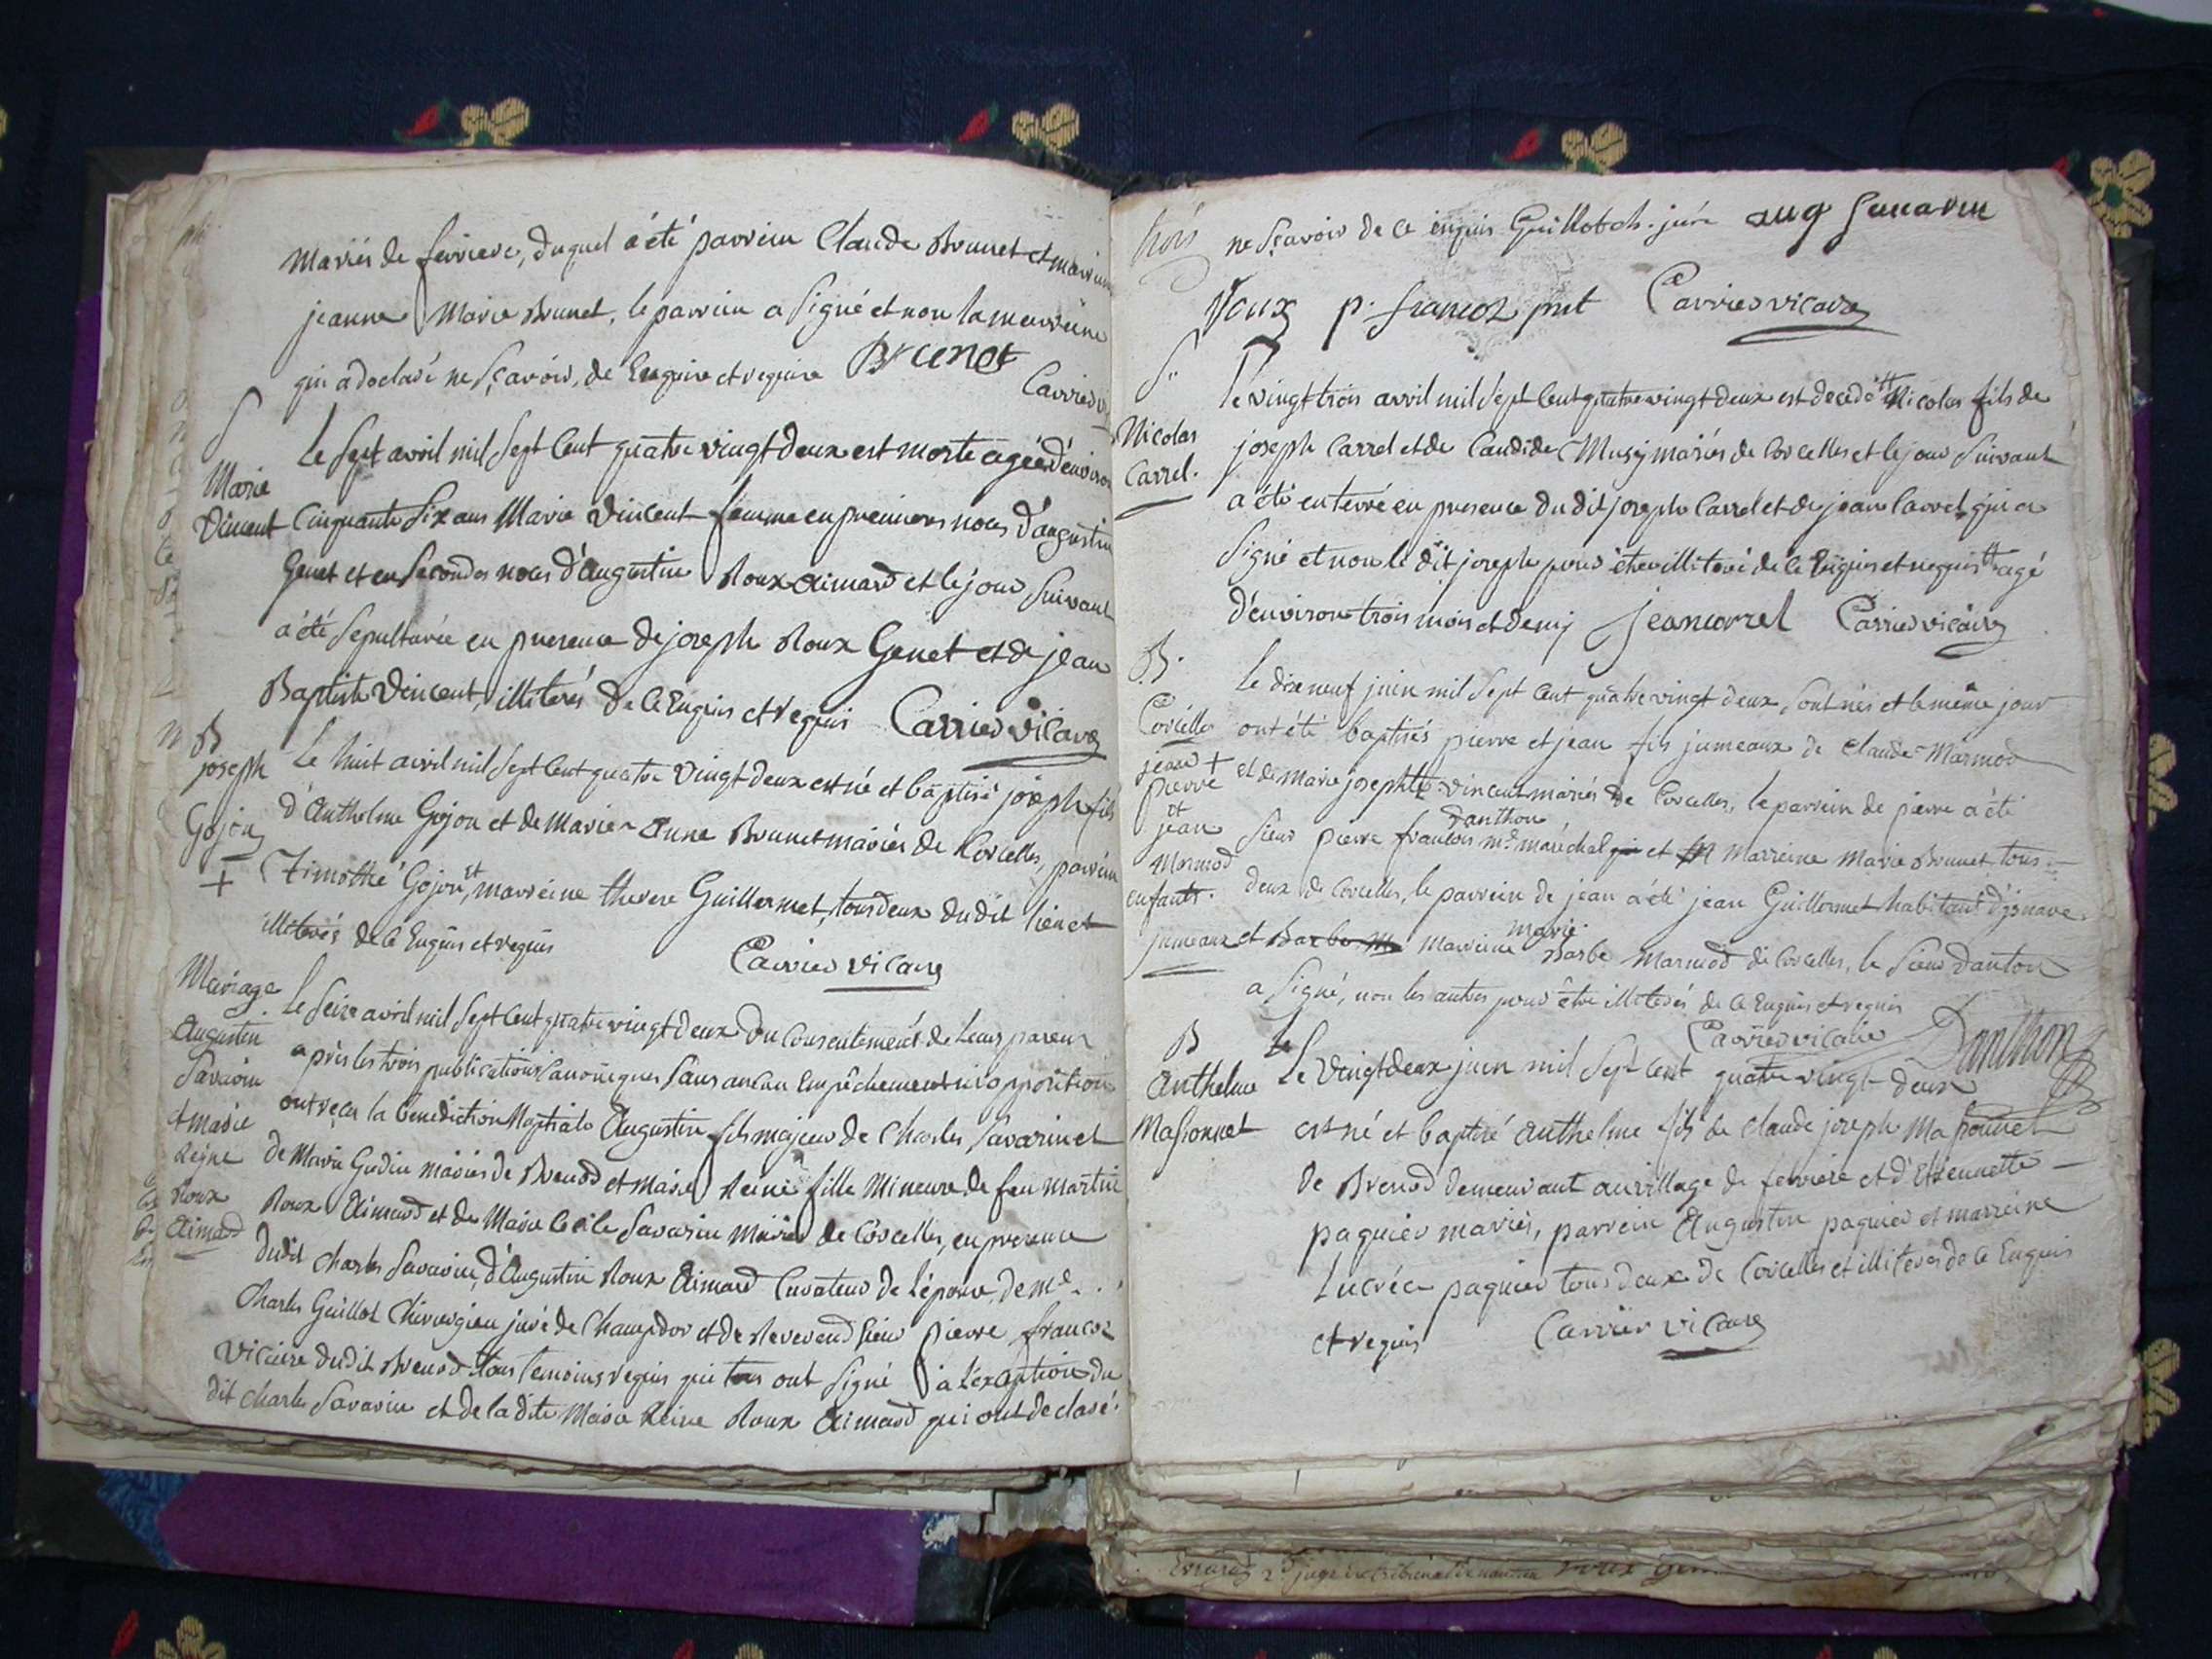 mariés de ferriere, duquel a été parrein Claude Brunet et marreine
jeanne Marie Brunet, le parrein a signé et non la marreine
qui a declaré ne sçavoir, de enquire et require Brunet
Carrier
S
Marie
Vincent
Le sept avril mil sept cent quatre vingt deux est morte agée d'environ
cinquante six ans Marie Vincent femme en premieres noces d'augustin
Genet et en secondes noces d'augustin Roux aimard et le jour suivant
a été sepulturée en presence de joseph Roux Genet et de jean
Baptiste Vincent, illiterés de ce enquis et requis Carrier vicaire
B
joseph
Gojon
+
Le huit avril mil sept cent quatre vingt deux est né et baptisé joseph fils
d'Anthelme Gojon et de Marie-anne Brunet mariés de Corcelles, parrein
Timothé Gojon, et marreine therese Guillermet, tous deux dudit lieu et
illiterés de ce enquis et requis
Carrier vicaire
Mariage
Augustin
Savarin
et marie
Reine
Roux
aimard
Le seize avril mil sept cent quatre vingt deux du consentement de leurs parens
après les trois publications canoniques sans aucun empêchement ni opposition
ont reçu la benediction Nuptiale Augustin fils majeur de Charles Savarin et
de Marie Gudin mariés de Brenod et Marie Reine fille mineure de feu martin
Roux Aimard et de Marie Cecile Savarin mariés de Corcelles, en presence
dudit Charles Savarin, d'Augustin Roux Aimard Curateur de l'épouse, de me
Charles Guillot Chirurgien juré de Champdor et de Reverend sieur pierre francoz
vicaire dudit Brenod tous temoins requis qui tous ont signé à l'exception du
dit Charles Savarin et de la dite Marie Reine Roux Aimard qui ont declaré
trois
ne sçavoir de ce enquis Guillot ch. juré aug savarin
Roux p. francoz pret Carrier vicaire
S.
Nicolas
Carrel.
Le vingt trois avril mil sept cent quatre vingt deux est decedé # Nicolas fils de
joseph Carrel et de Candide Musy mariés de Corcelles et le jour suivant
a été enterré en presence du dit joseph Carrel et de jean Carrel qui a
signé et non le dit joseph pour être illiteré de ce enquis et requis # agé
d'environ trois mois et demy jean carrel Carrier vicaire
B.
Corcelles
jean +
pierre
et
jean
Marmod
enfants
jumeaux
Le dix neuf juin mil sept cent quatre vingt deux sont nés et le même jour
ont été baptisés pierre et jean fils jumeaux de Claude Marmod
et de marie josephte vincent mariés de Corcelles, le parrein de pierre a été
danthon
sieur pierre francois md maréchal et marreine Marie Brunet tous
deux de Corcelles, le parrein de jean a été jean Guillermet habitant d'jsnave
marie
et Barbe Ma marreine Barbe Marmod de Corcelles, le sieur Danton
a signé, non les autres pour être illiterés de ce enquis et requis
Carrier vicaire Danthon
B
Anthelme
Massonnet
Le vingt deux juin mil sept cent quatre vingt deux
est né et baptisé anthelme fils de Claude joseph Massonnet
de Brenod demeurant au village de ferriere et d'Etiennette
paquier mariés, parrein Augustin paquier et marreine
Lucréce paquier tous deux de Corcelles et illiterés de ce enquis
et requis Carrier vicaire